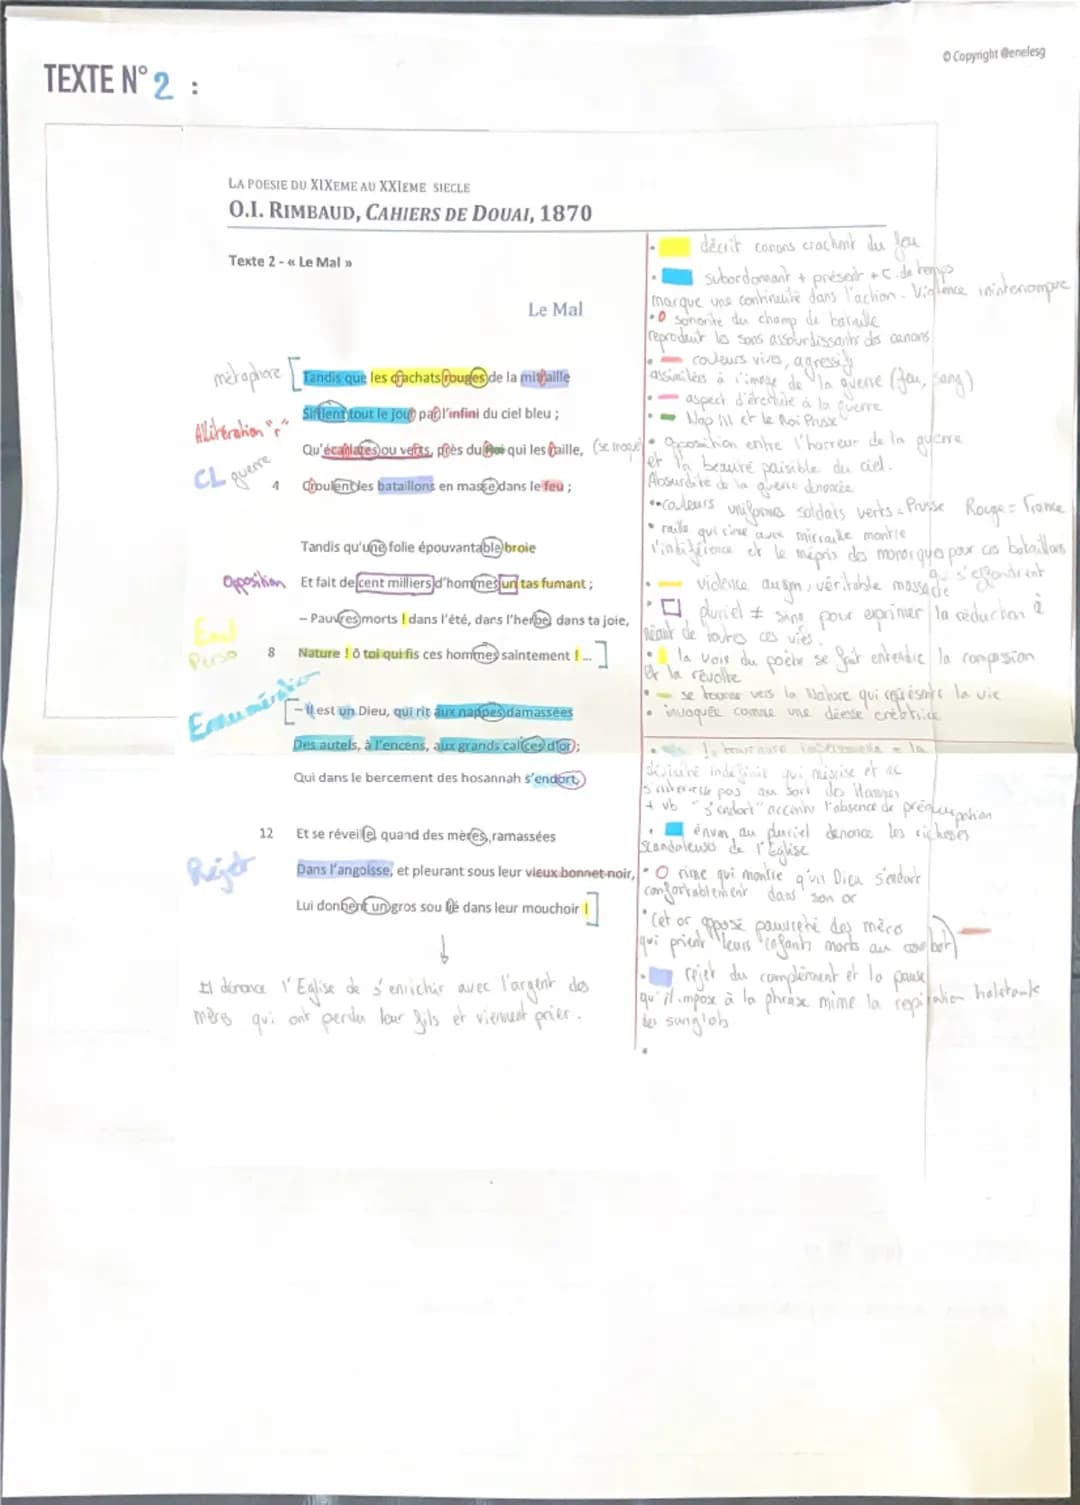 © Copyright @enelesg
TEXTE N° 2 :
LA POESIE DU XIXEME AU XXIEME SIECLE
O.I. RIMBAUD, CAHIERS DE DOUAI, 1870
Texte 2 - « Le Mal »
Le Mal
métaphore
Tandis que les crachats rouges de la mitraille
Sifflent tout le jour par l'infini du ciel bleu ;
Allitération "r"
Qu'écarlates ou verts, près du Roi qui les raille, (se moque)
CL guerre
4 Croulent les bataillons en masse dans le feu ;
Tandis qu'une folie épouvantable broie
Opposition
Et fait de cent milliers d'hommes un tas fumant ;
– Pauvres morts ! dans l'été, dans l'herbe, dans ta joie,
Perso
8 Nature ! ô toi qui fis ces hommes saintement ! ...
Enumération
– Il est un Dieu, qui rit aux nappes damassées
Des autels, à l'encens, aux grands calices d'or ;
Qui dans le bercement des hosannah s'endort,
12 Et se réveille, quand des mères, ramassées
Rejet
Dans l'angoisse, et pleurant sous leur vieux bonnet noir,
Lui donnent un gros sou lié dans leur mouchoir !
dénonce l'Eglise de s'enrichir avec l'argent des
mères qui ont perdu leur fils et viennent prier.
• décrit canons crachent du feu
• subordonnant + présent + C. de temps
marque une continuité dans l'action. Violence ininterrompue
• sonorité du champ de bataille
reproduit les sons assourdissants des canons
• couleurs vives, agressif
assimilées à l'image de la guerre (feu, sang)
• aspect d'éternité à la guerre
• Nap III et le Roi Prusse
• opposition entre l'horreur de la guerre
et la beauté paisible du ciel.
Absurdité de la guerre dénoncée
• couleurs uniformes soldats verts = Prusse Rouge = France
• raille qui rime avec mitraille montre
l'indiférence et le mépris des monarques pour ces bataillons
qui s'effondrent
• violence augm, véritable massacre
• pluriel ≠ sing pour exprimer la réduction à
néant de toutes ces vies.
• la voix du poète se fait entendre la compassion
et la révolte
• se tourne vers la Nature qui représente la vie
• invoquée comme une déesse créatrice
• la tournure impersonnelle = la
divinité indéfinie qui méprise et ne
s'intéresse pas au sort des
+ vb "s'endort" accentue l'absence de préoccupation
• énum au pluriel dénonce les richesses
scandaleuses de l'Eglise
• rime qui montre qu'un Dieu s'endort
confortablement dans son or
• Cet or opposé pauvreté des mères
qui prient leurs enfants morts au combat
• rejet du complément et la pause
qu'il impose à la phrase mime la respiration haletante
des sanglots